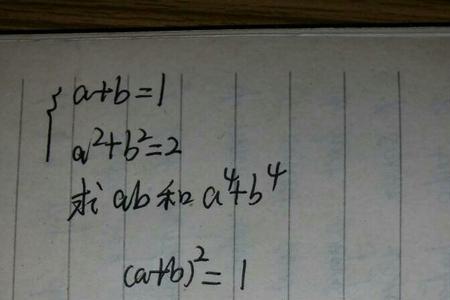 {a+b=1
a²+b²=2
求ab和a⁴+b⁴
(a+b)²=1